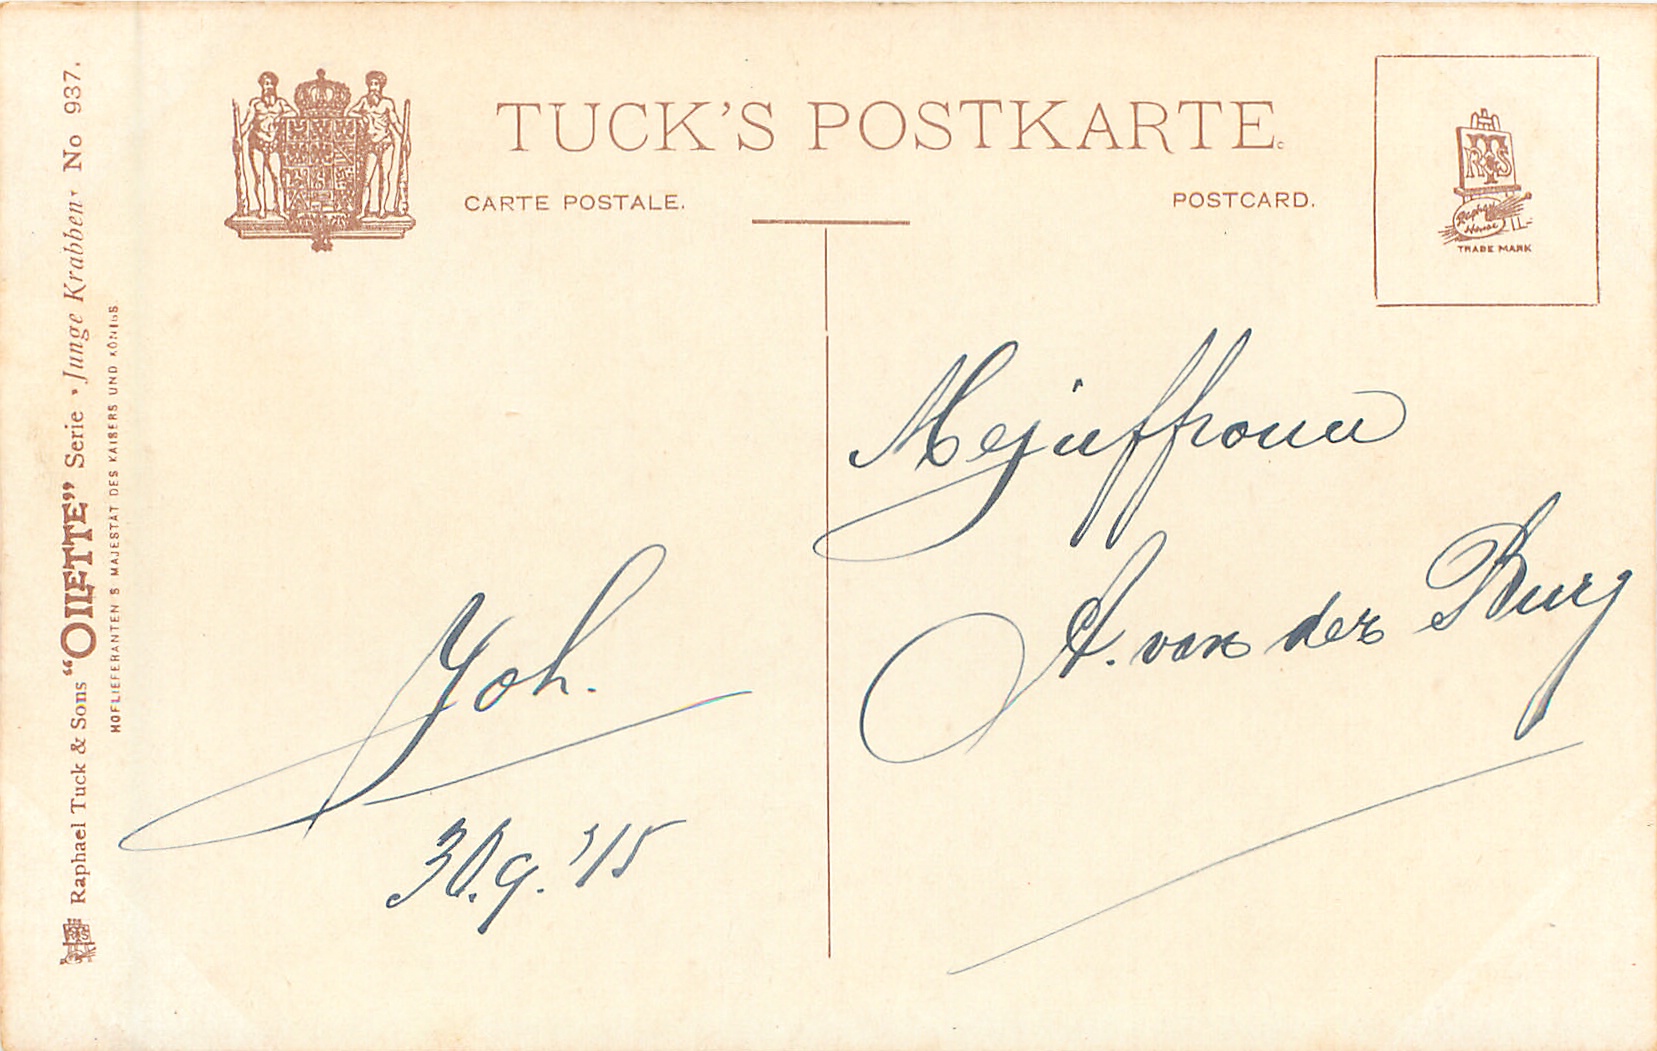 TUCK'S POSTKARTE.
CARTE POSTALE.
POSTCARD.
RTS
Raphael House
TRADE MARK
Raphael Tuck & Sons “OILETTE” Serie "Junge Krabben" No 937.
HOFLIEFERANTEN S MAJESTÄT DES KAISERS UND KÖNIGS
Mejuffrouw
A. van der Burg
Joh.
30.9.'15